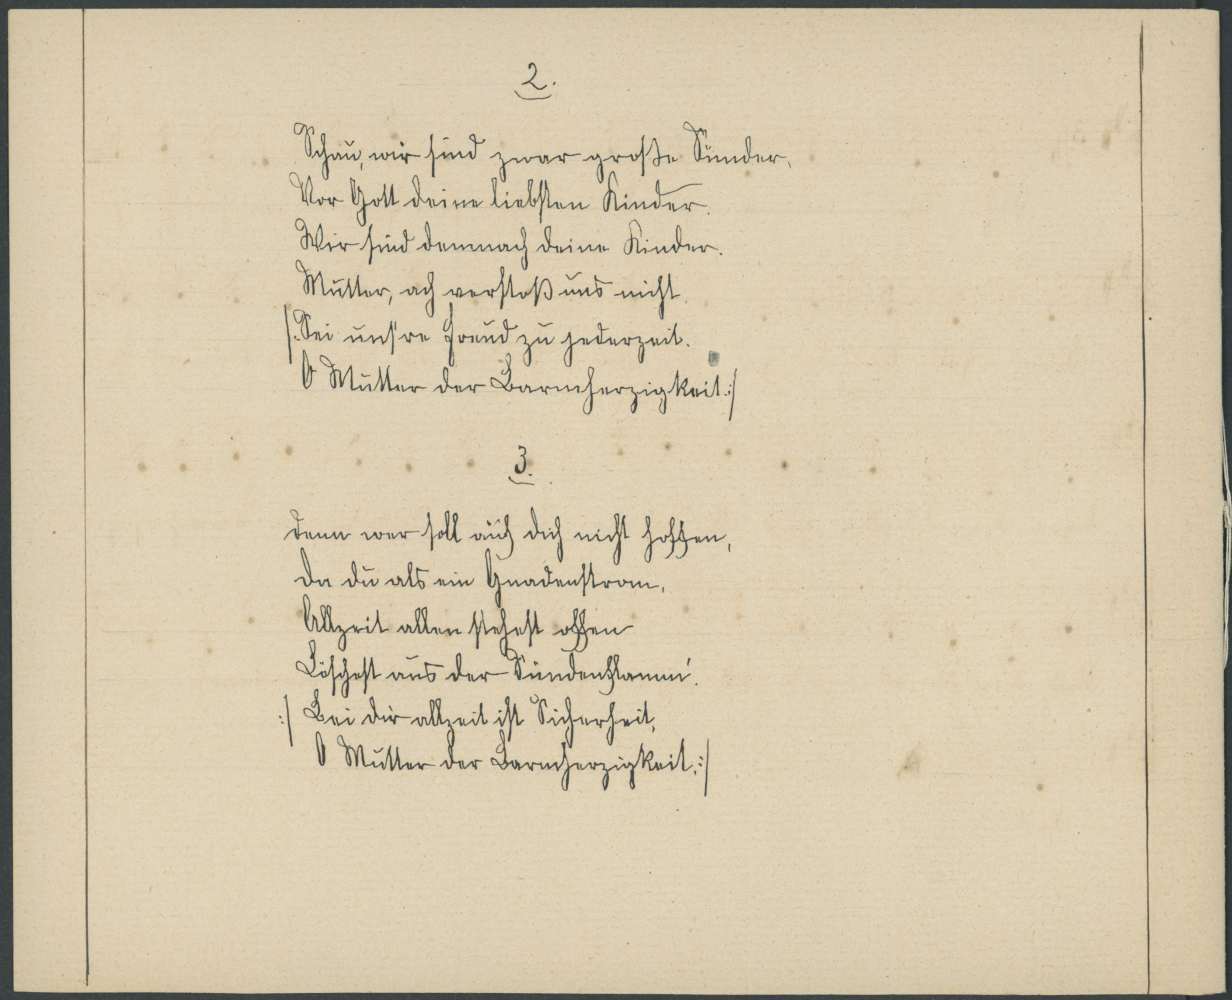 2.
Schau, wir sind zwar große Sünder,
Vor Gott deine liebsten Kinder.
Wir sind demnach deine Kinder.
Mutter, ach verstoß uns nicht.
/: Sei uns're Freud zu jederzeit.
O Mutter der Barmherzigkeit :/
3.
Denn wer soll auf dich nicht hoffen,
Da du als ein Gnadenstrom,
Allzeit allen stehest offen
Löschest aus der Sündenflamm'.
:/ Bei dir allzeit ist Sicherheit,
O Mutter der Barmherzigkeit, :/